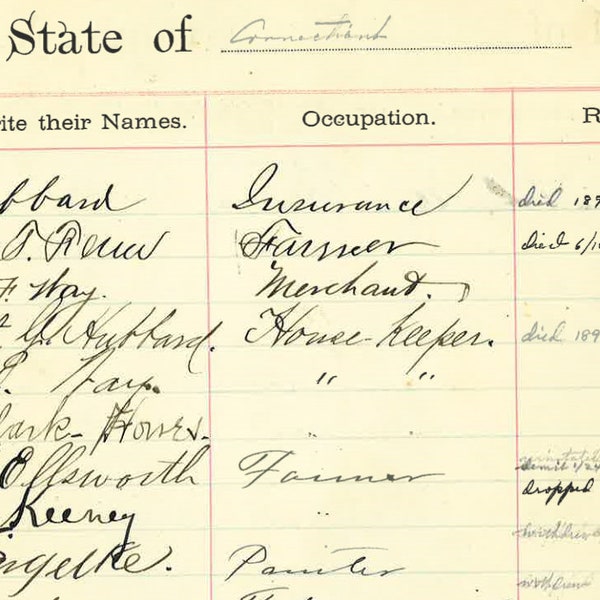 State of Connecticut
ite their Names. Occupation. R
bbard Insurance died 189
T. Farmer died 6/1
F. Way. Merchant.
G. Hubbard. House-Keeper. died 189
Way. " "
lark Howes. "
Ellsworth Farmer demit 1/24
dropped
Keeney "
withdrew
ngelke. Painter
withdrew